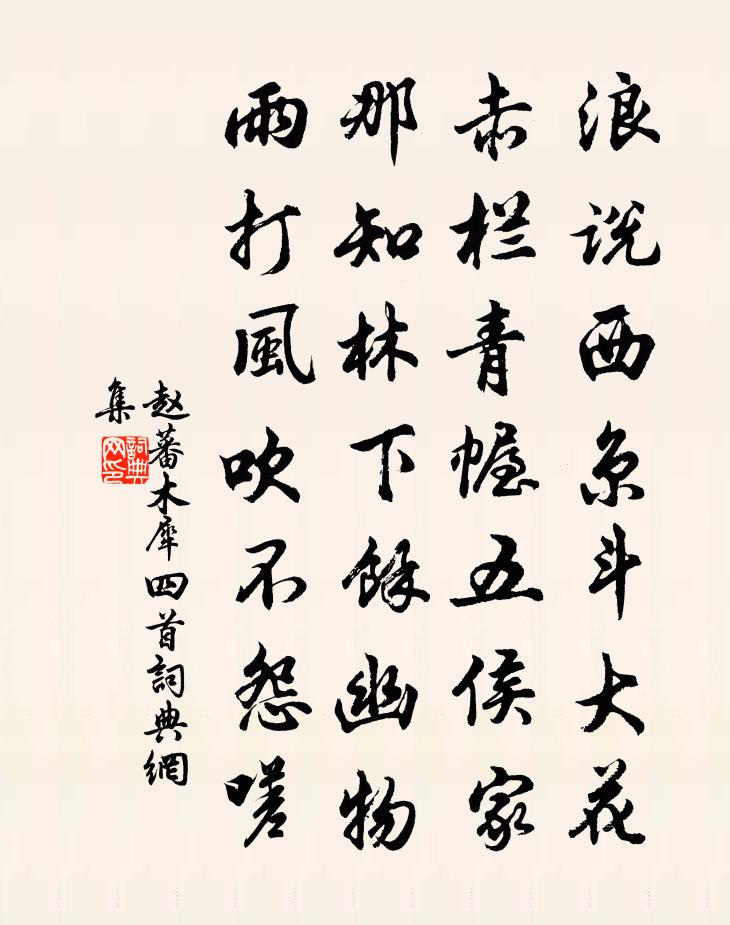 浪说西京斗大花
赤栏青幄五侯家
那知林下餘幽物
雨打風吹不怨嗟
赵蕃木犀四首詞典網
集
詞典网印